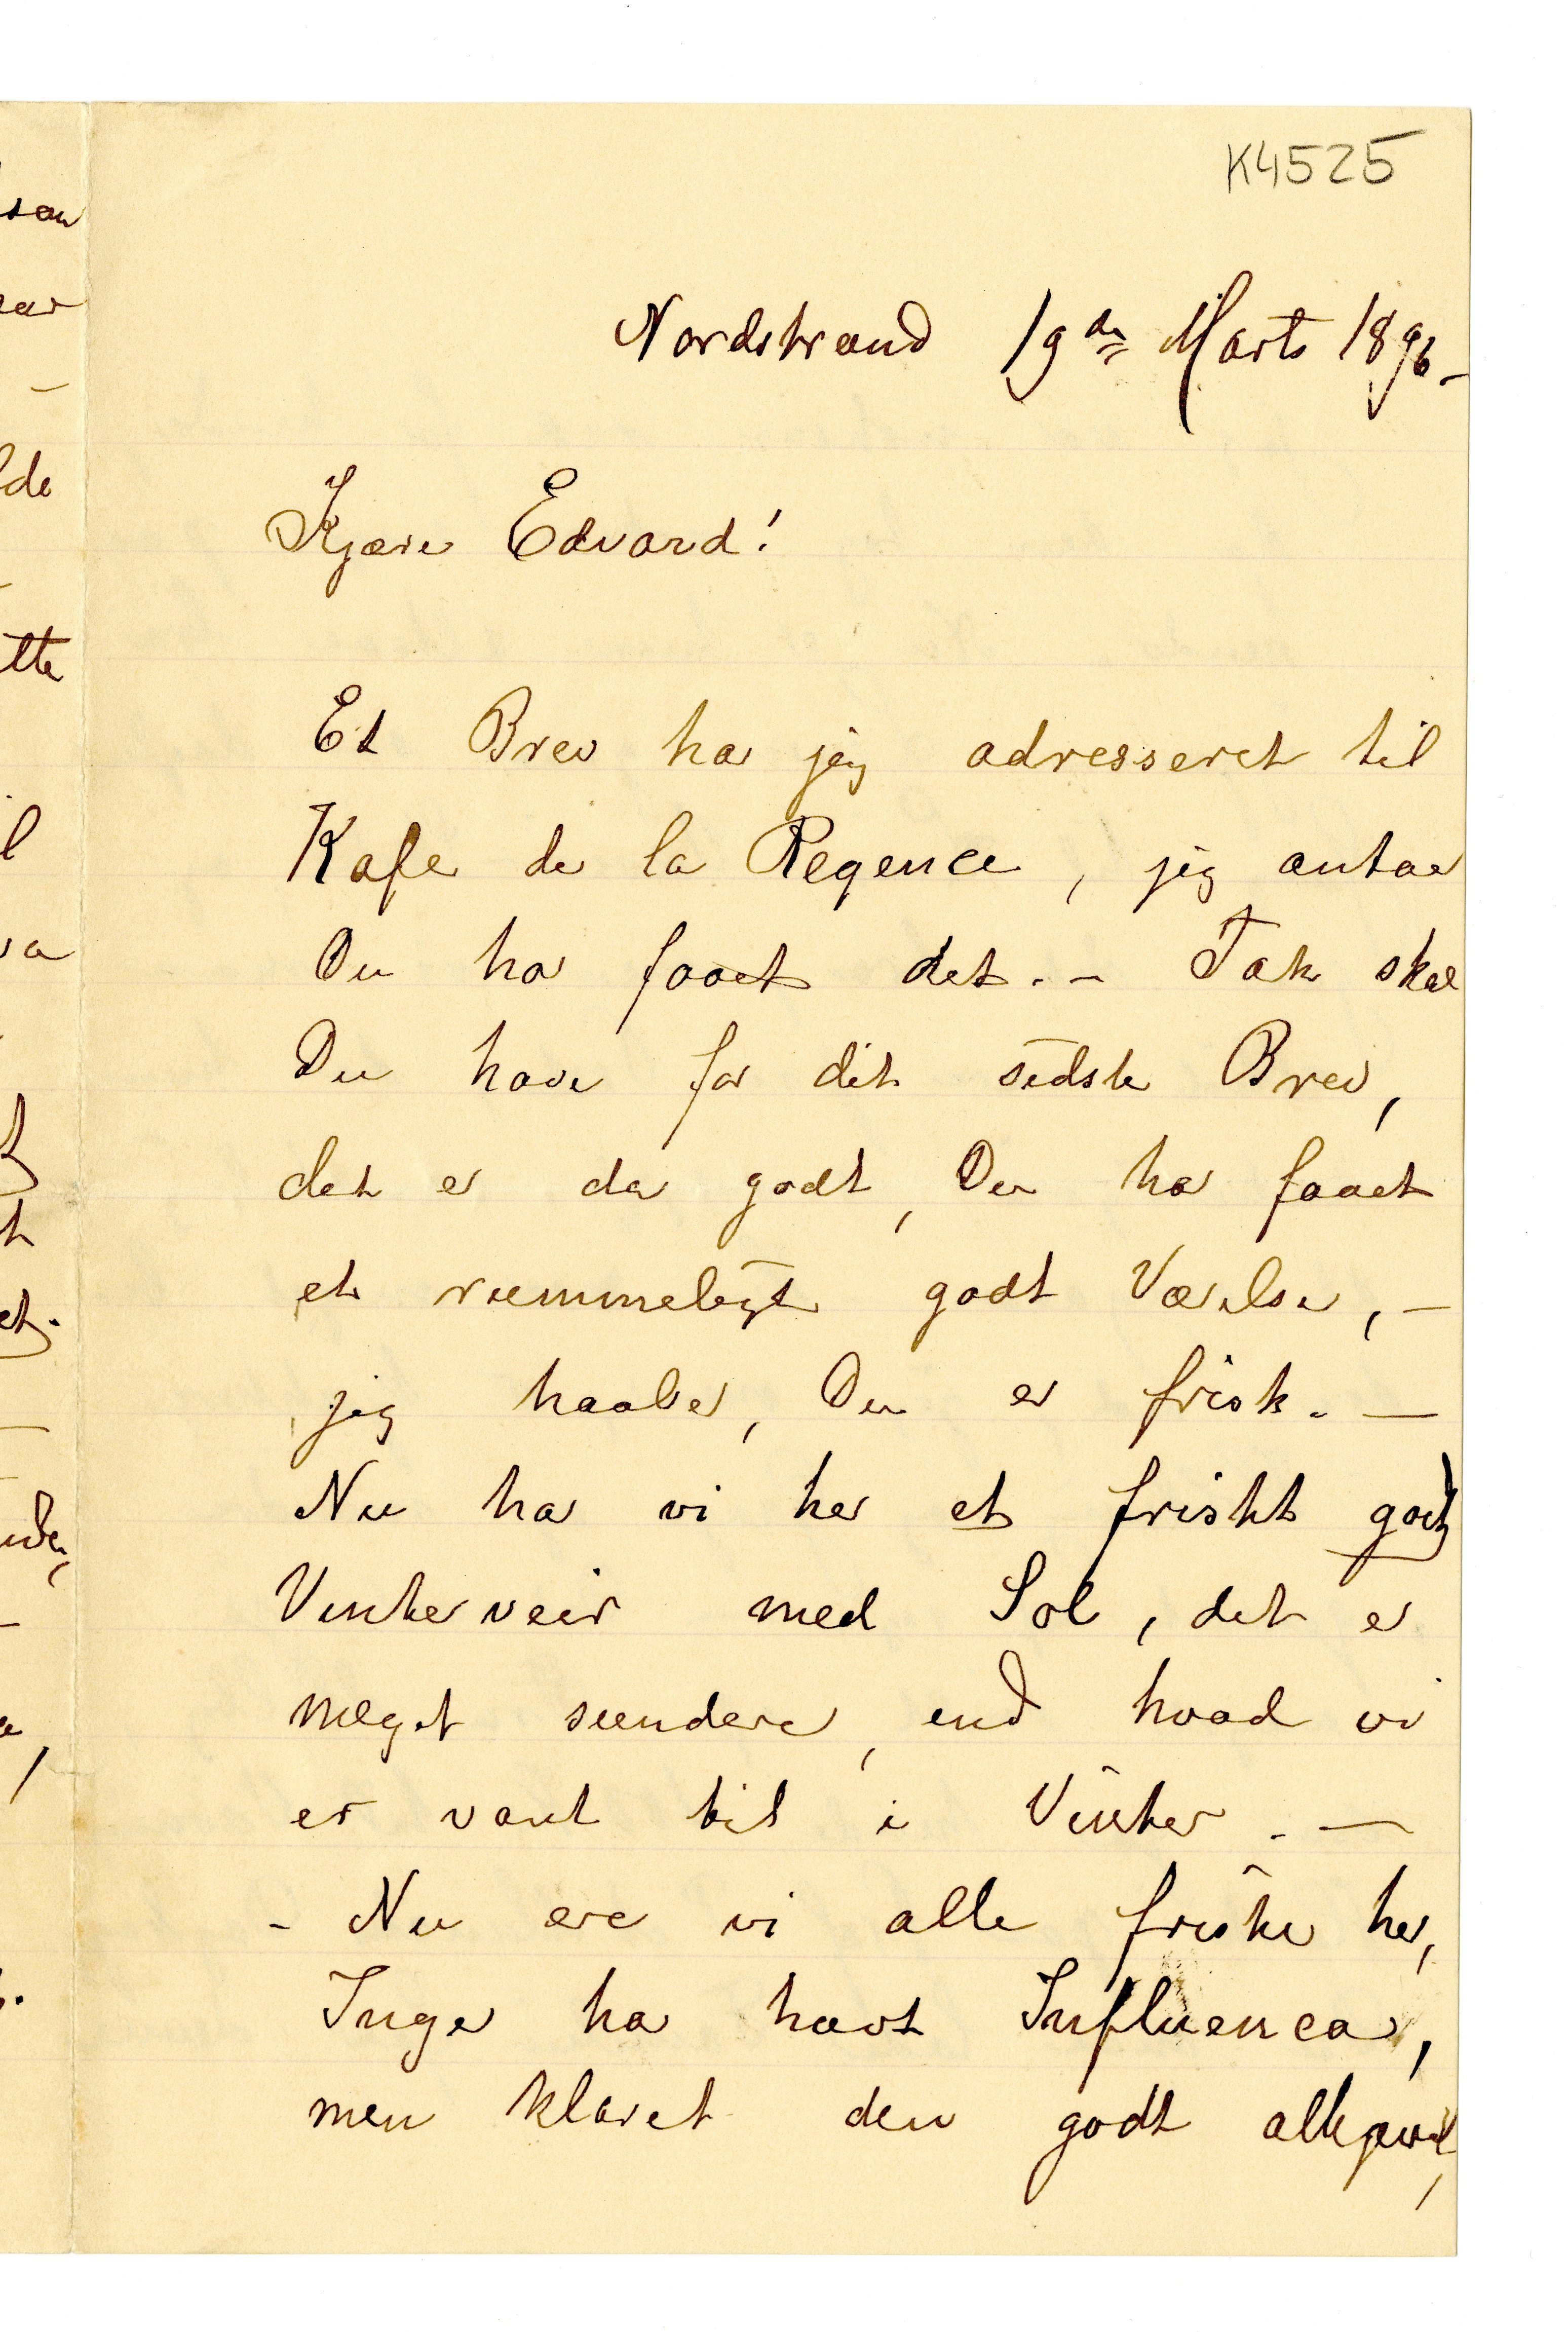 K4525
Nordstrand 19de Marts 1896 -
Kjære Edvard!
Et Brev har jeg adresseret til
Kafe de la Regence, jeg antar
Du har faaet det. - Tak skal
Du have for dit sidste Brev,
det er da godt, Du har faaet
et rummeligt godt Værelse, -
jeg haaber, Du er frisk. -
Nu har vi her et friskt godt
Vinterveir med Sol, det er
meget sundere, end hvad vi
er vant til i Vinter. -
- Nu ere vi alle friske her,
Inger har havt Influenca,
men klaret den godt alligevel,